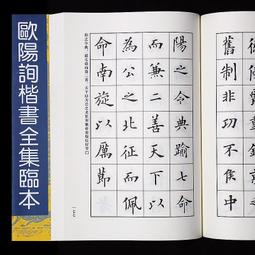 歐陽詢楷書全集臨本
舊制非功不侯中
陽之令典踰七命
而兼二善天下以
為公之北征而佩
命南旋以厲節